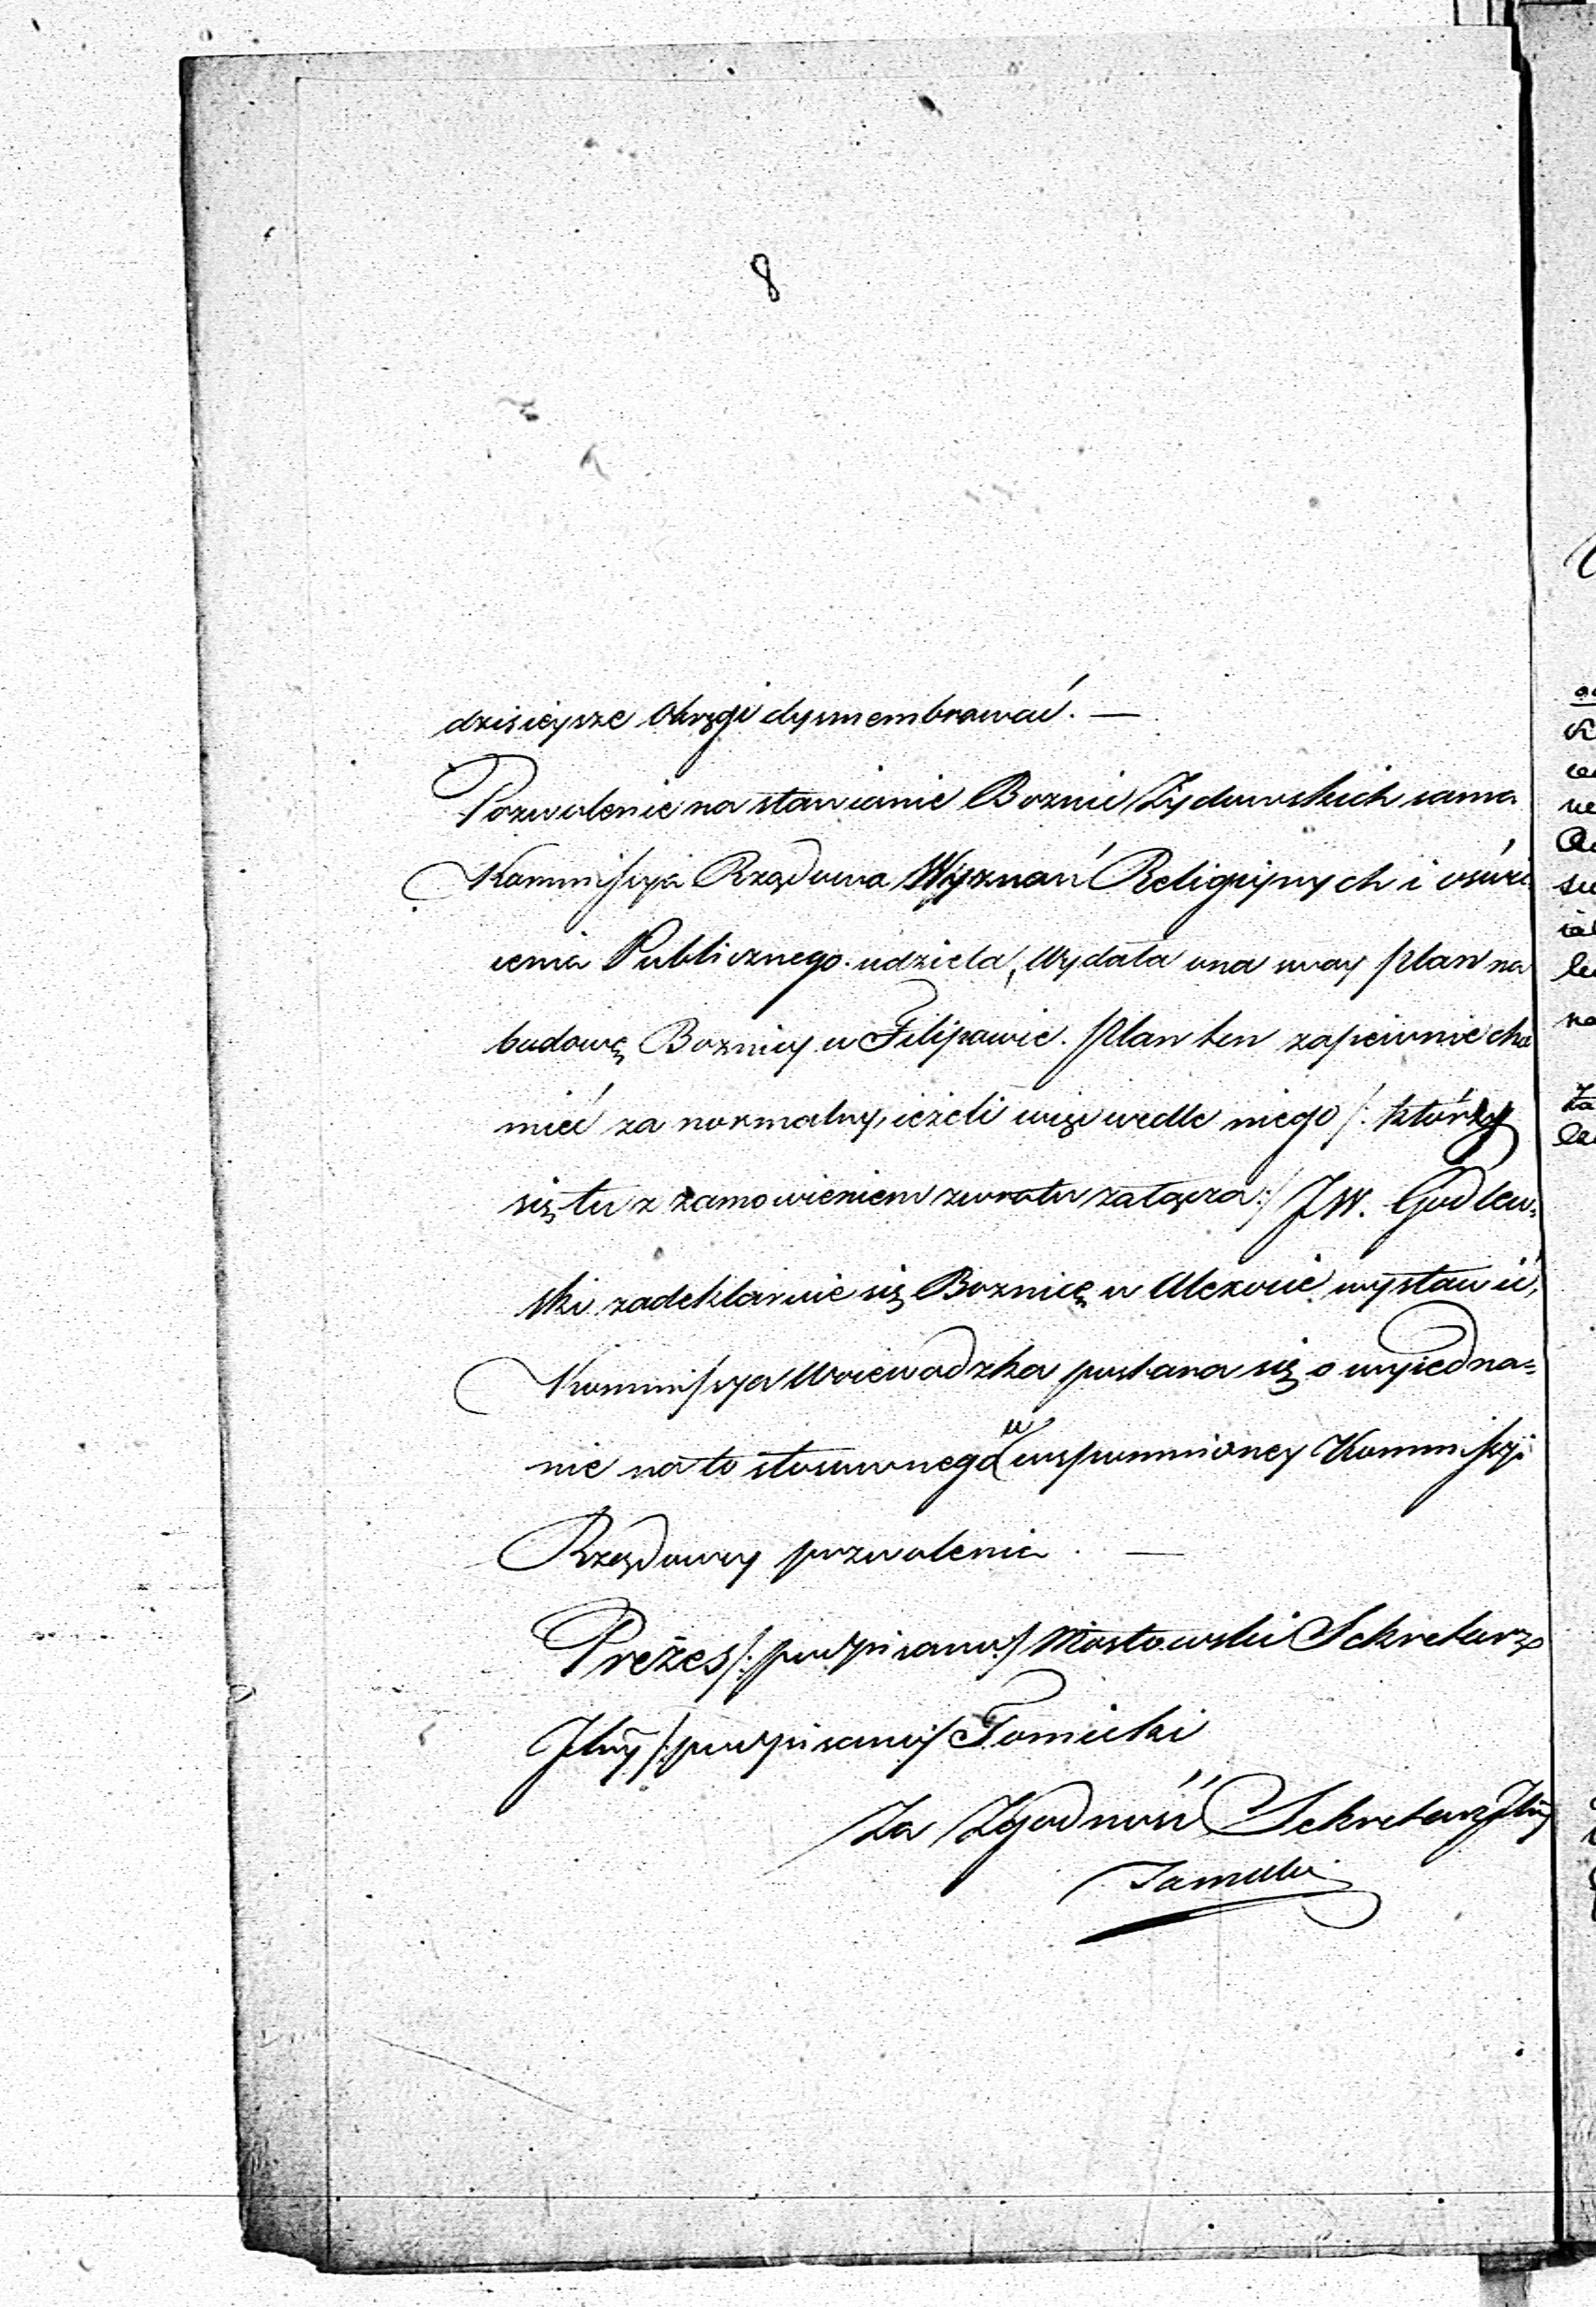 8
dzisieysze Okręgi dysmembrować. —
Pozwolenie na stawianie Boznic Żydowskich sama
Kommissya Rządowa Wyznań Religiynych i oświe
cenia Publicznego udziela, Wydała ona now plan na
budowę Boznicy w Filipowie. Plan ten zapewnie chce
mieć za normalny, ieżeli więc wedle niego /: który
się tu z zamowieniem zwrotu załącza :/ JW. Godlew=
ski zadeklaruie się Boznicę w wystawić,
Kommissya Woiewodzka postara się o wyiedna=
nie na to stosownego u wspomnioney Kommissyi
Rządowey pozwolenia. —
Prezes /: podpisano :/ Mostowski Sekretarz
Jlny /: podpisany :/ Tomicki
Za Zgodność Sekretarz Jlny